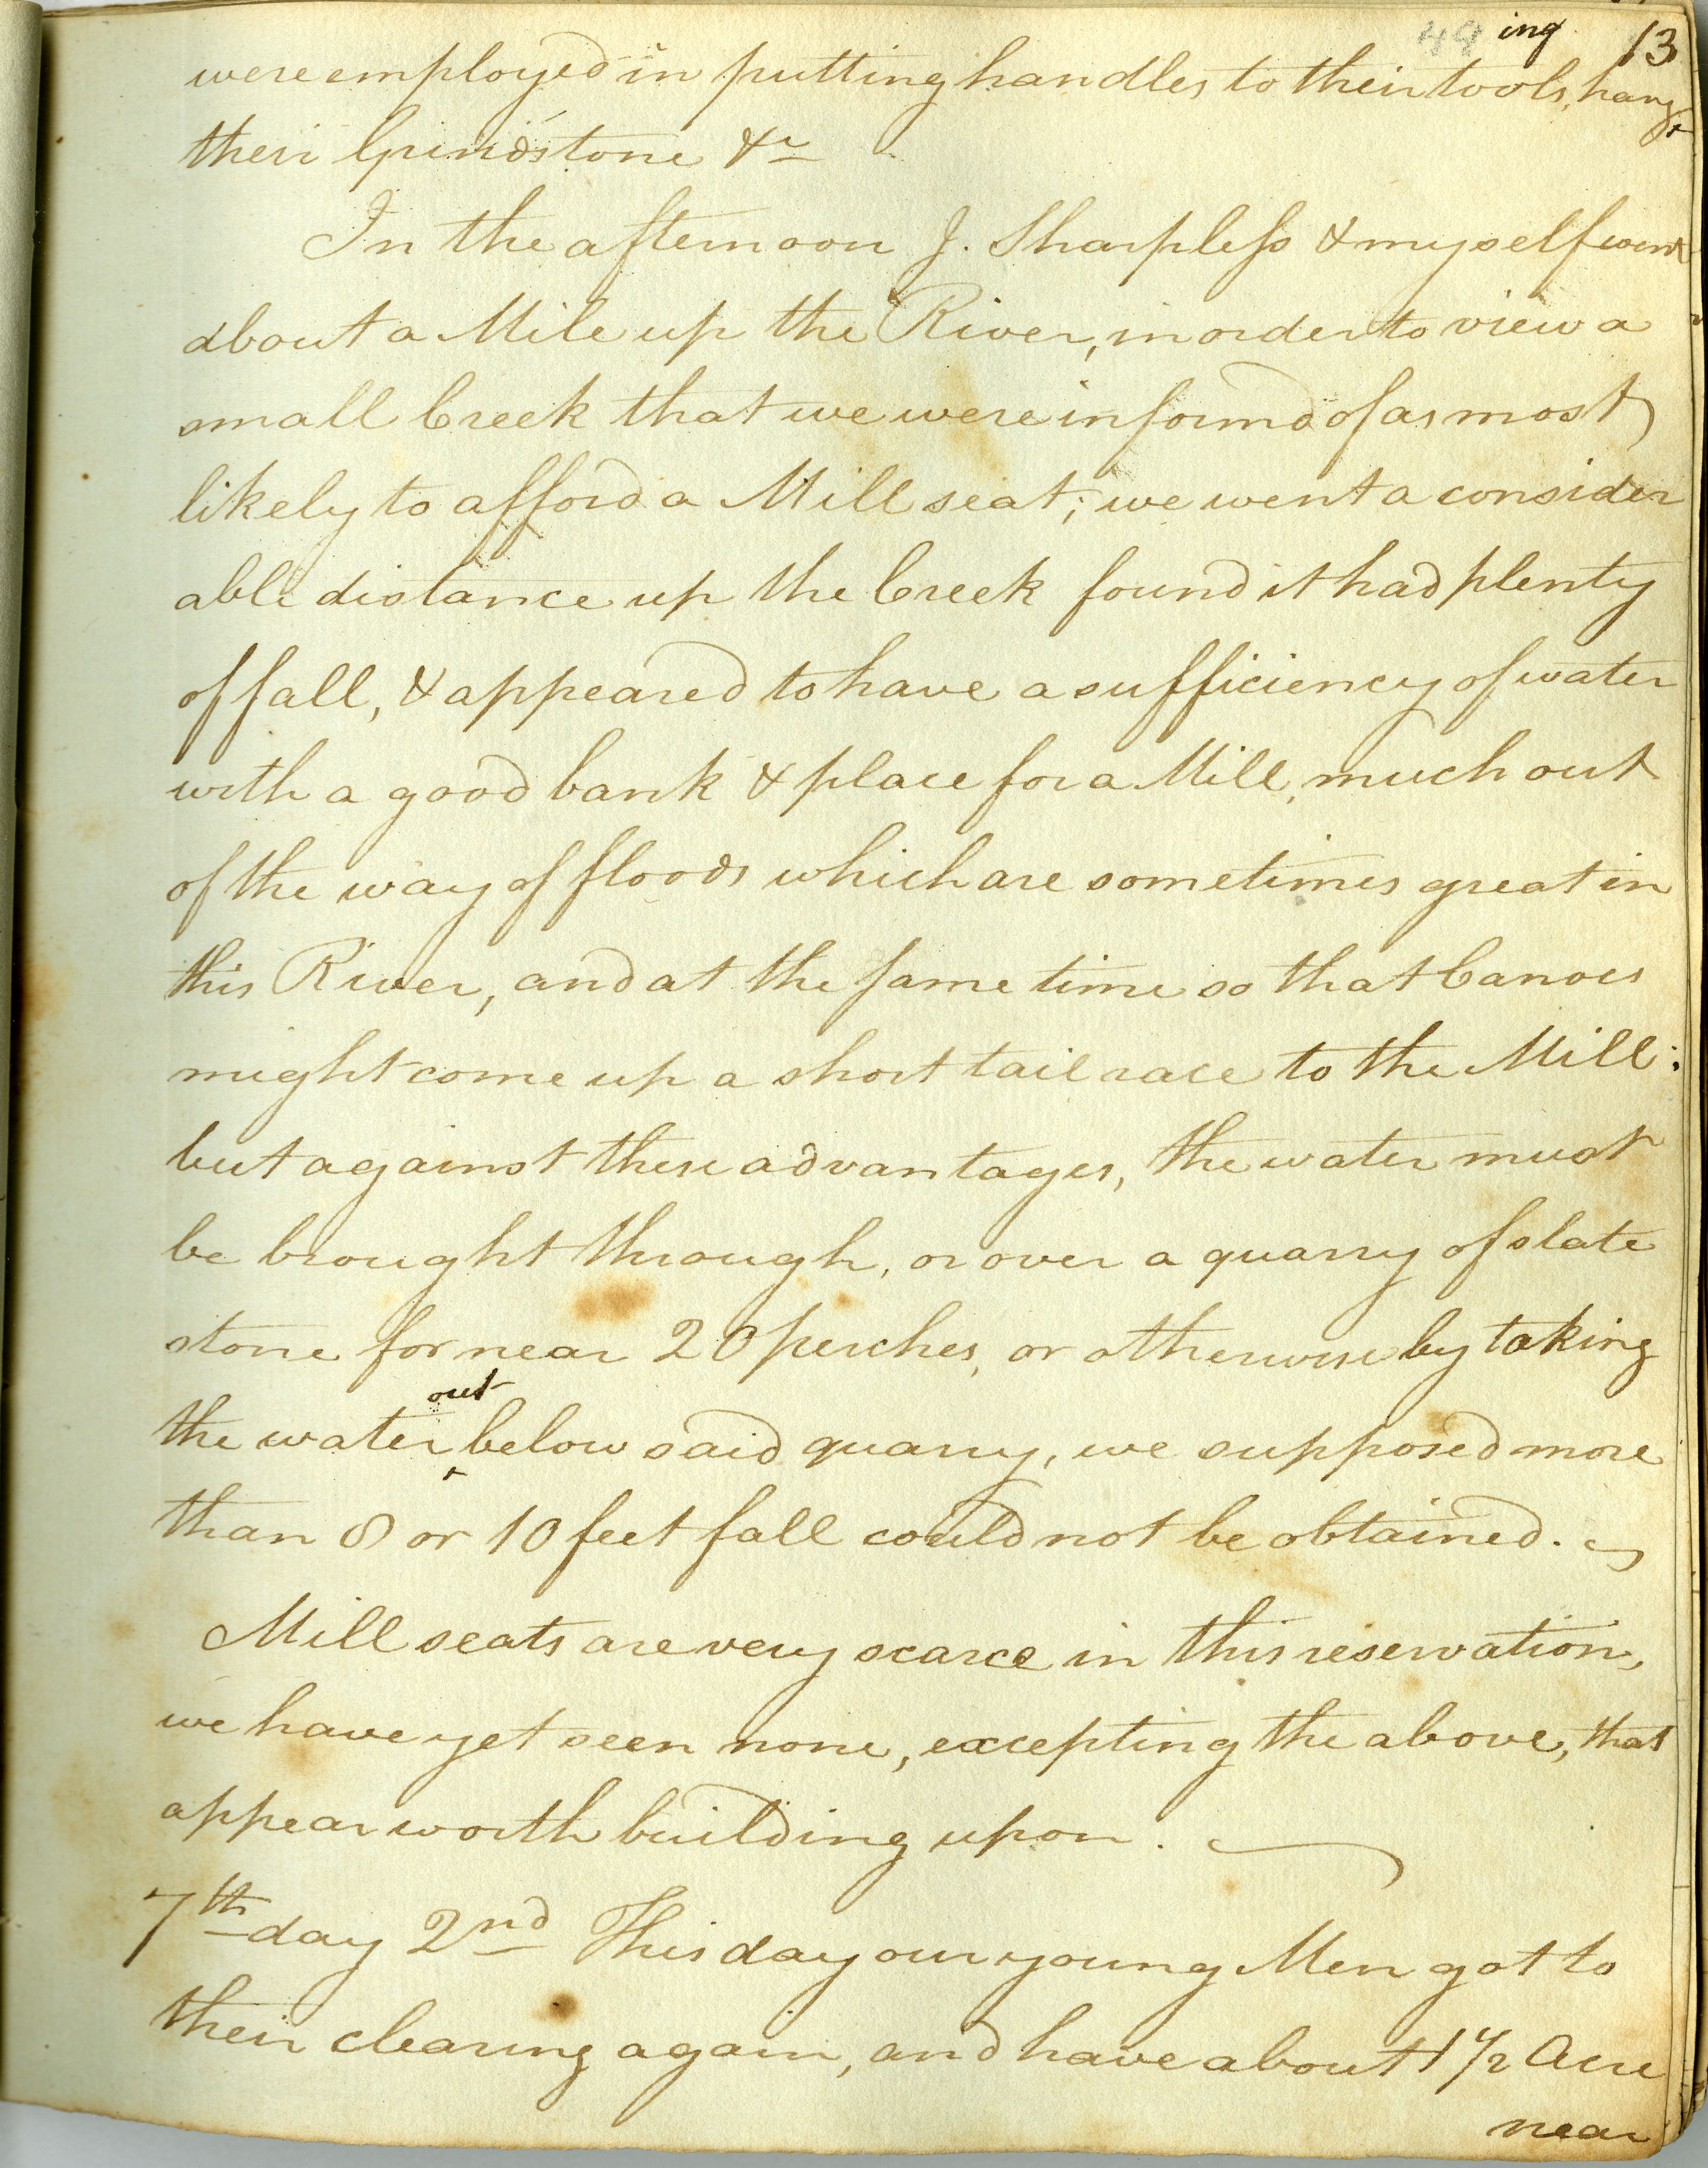 49 13
were employed in putting handles to their tools, hanging
their Grindstone &c
In the afternoon J. Sharpless & myself went
about a Mile up the River, in order to view a
small Creek that we were informd of as most
likely to afford a Mill seat; we went a consider
able distance up the Creek found it had plenty
of fall, & appeared to have a sufficiency of water
with a good bank & place for a Mill, much out
of the way of floods which are sometimes great in
this River, and at the same time so that Canoes
might come up a short tail race to the Mill:
but against these advantages, the water must
be brought through, or over a quarry of slate
stone for near 20 perches, or otherwise by taking
the water out below said quarry, we supposed more
than 8 or 10 feet fall could not be obtained.
Mill seats are very scarce in this reservation,
we have yet seen none, excepting the above, that
appear worth building upon.
7th day 2nd This day our young Men got to
their clearing again, and have about 1 1/2 Acre
near